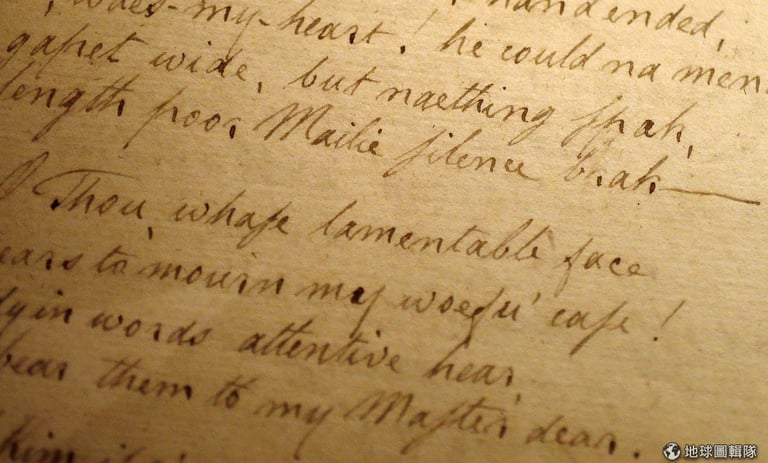 , waes-my-heart! he could na men
gapet wide, but naething spak,
length poor Mailie silence brak—
O Thou, whase lamentable face
ears to mourn my woefu' case!
dyin words attentive hear,
bear them to my Master dear.
him
地球圖輯隊